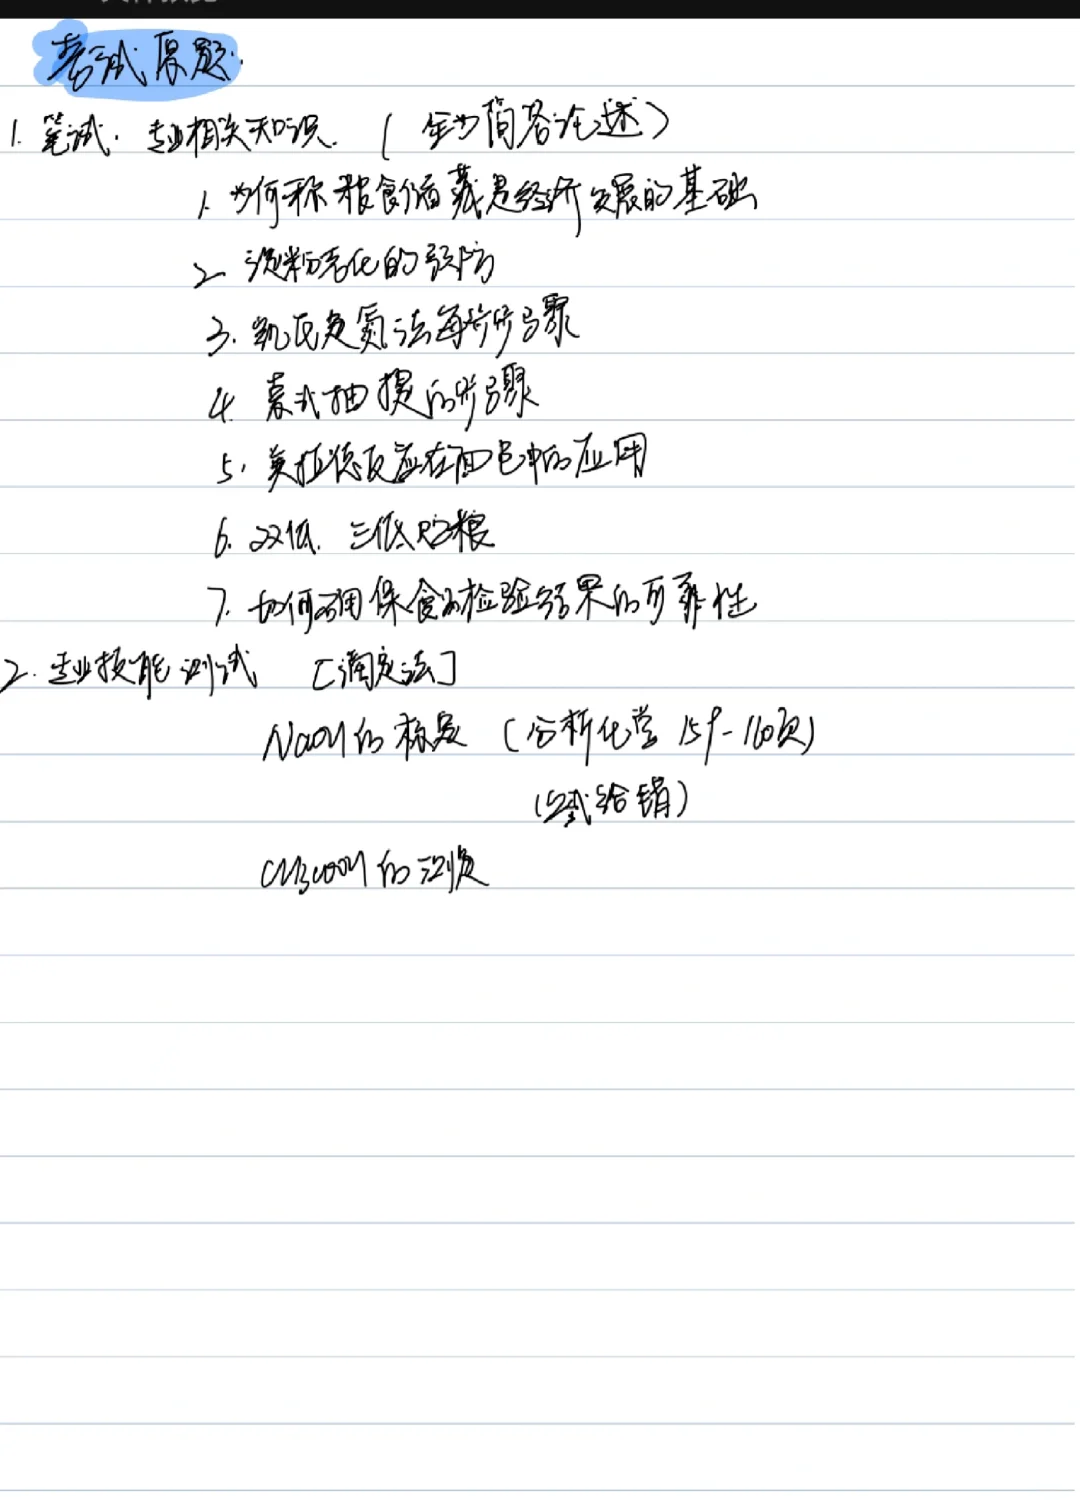 考试原题.
1. 笔试. 专业相关知识. (全为简答论述)
1. 为何称粮食储藏是经济发展的基础
2. 淀粉老化的预防
3. 凯氏定氮法每阶步骤
4. 索式抽提的步骤
5. 美拉德反应在面包中的应用
6. 双低. 三低贮粮
7. 如何确保食品检验结果的可靠性
2. 专业技能测试 [滴定法]
NaOH的标定 (分析化学 159-160页)
CH3COOH的测定